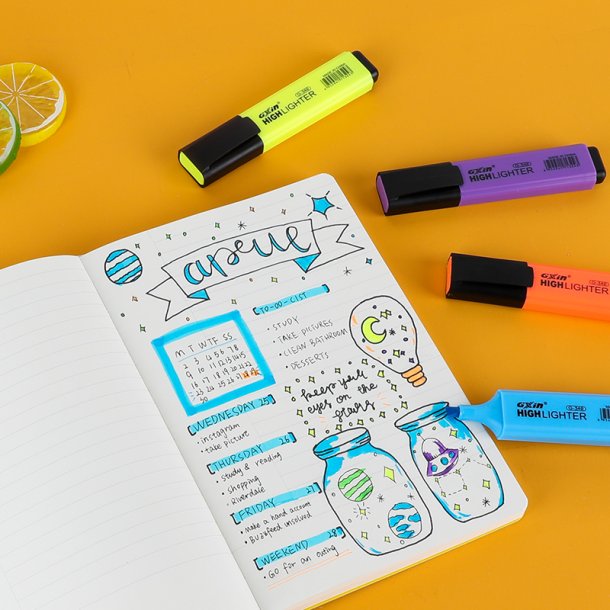 GXin
HIGHLIGHTER
GXin
HIGHLIGHTER
GXin
HIGHLIGHTER
GXin
HIGHLIGHTER
apeue
TO-DO-LIST
• STUDY
• TAKE PICTURES
• CLEAN BATHROOM
• DESSERTS
M T W T F S S
2 3 4 5 6 7 8
9 10 11 12 13 14 15
16 17 18 19 20 21 22
23 24 25 26 27
30
keep you
eyes on the
stars
WEDNESDAY 25
• instagram
• take picture
THURSDAY 26
• study & reading
• shopping
• Riverdale
FRIDAY 27
• make a hand account
• Buzzfeed unsolved
WEEKEND 28
• GO for an outing